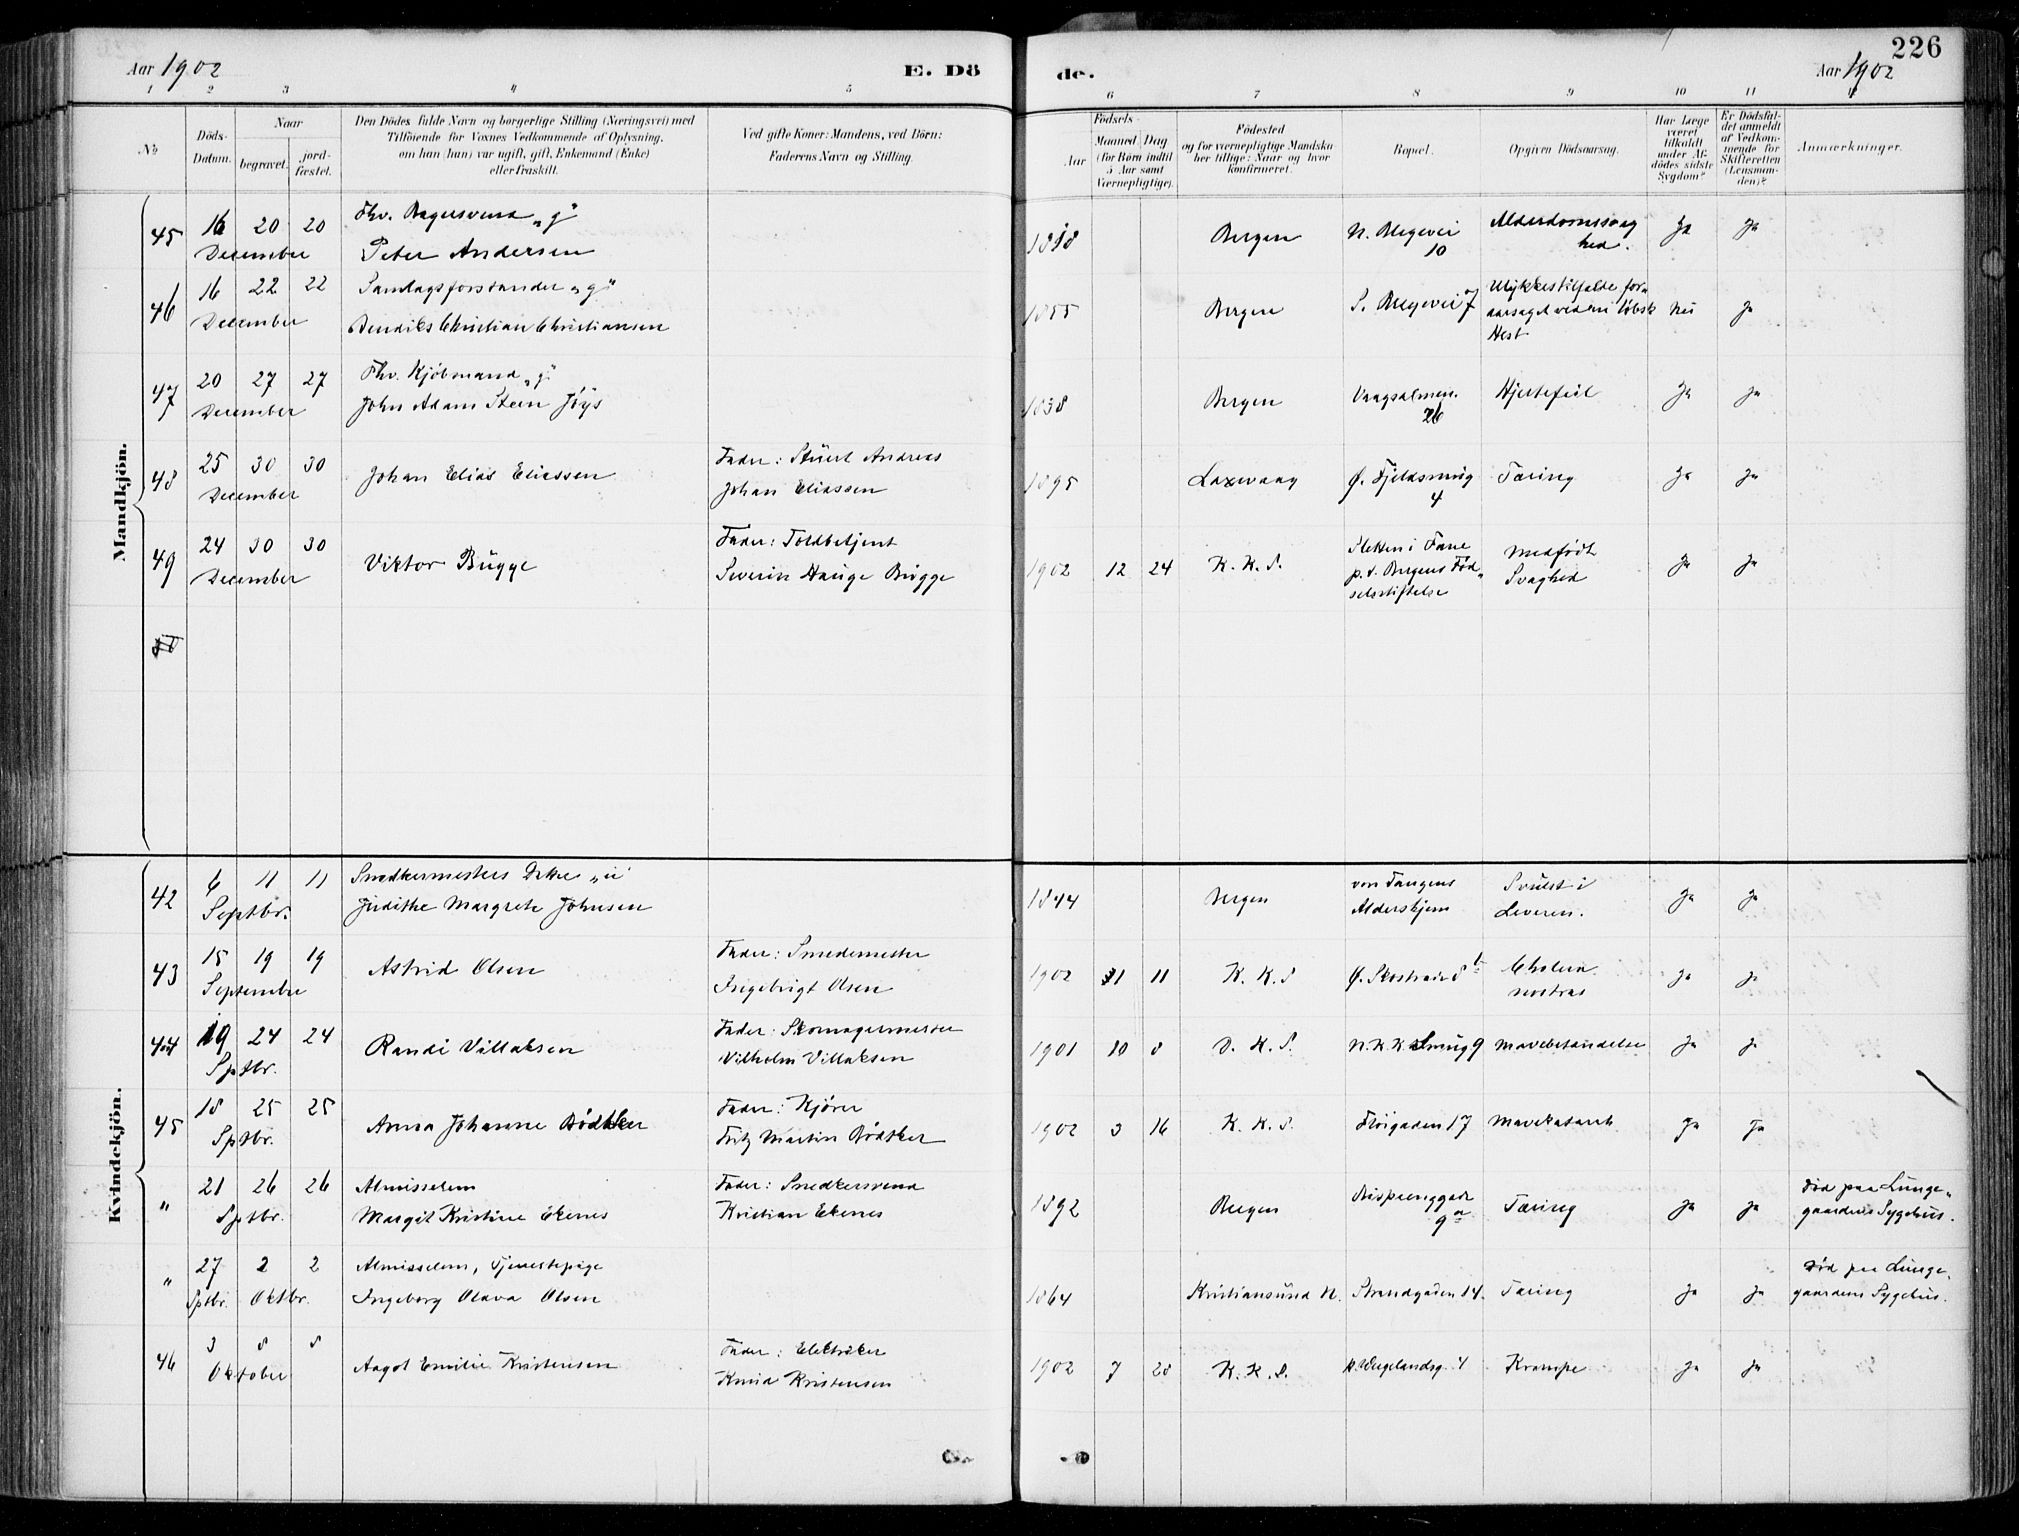 226
Aar 1902
E. Dö
de.
Aar 1902
1 2 3 4 5 6 7 8 9 10 11
No
Döds-
Datum.
Naar
begravet.
jord-
fæstet.
Den Dödes fulde Navn og borgerlige Stilling (Næringsvei) med
Tilföiende for Voxnes Vedkommende af Oplysning,
om han (hun) var ugift, gift, Enkemand (Enke)
eller fraskilt.
Ved gifte Koner: Mandens, ved Börn:
Faderens Navn og Stilling.
Födsels-
Aar
Maaned
Dag
(for Börn indtil
5 Aar samt
Værnepligtige).
Födested
og for værnepligtige Mandskab
her tillige: Naar og hvor
konfirmeret.
Bopæl.
Opgiven Dödsaarsag.
Har Læge
været
tilkaldt
under Af-
dödes sidste
Sygdom?
Er Dödsfal-
det anmeldt
af Vedkom-
mende for
Skifteretten
(Lensman-
den)?
Anmærkninger.
Mandkjön.
45 16 20 20 December
Fhv. Bagersvend „g"
Peter Andersen
Bergen
10
Alderdomssvag
hed.
Ja Ja
46 16 22 22 December
„g"
Christian Christiansen
1855 Bergen
S. Bergevei 7
Ulykkestilfælde for-
aarsaget ved en løbsk
Hest
Nei Ja
47 20 27 27 December
Fhv. Kjöbmand „g"
John Adam Stein Joys
1838 Bergen
Vaagsalmen.
26
Hjertefeil
Ja Ja
48 25 30 30 December
Johan Elias Eliassen
Fader: Andreas
Johan Eliassen
1895 Laxevaag
Ø. Fjeldsmug
4
Tæring
Ja Ja
49 24 30 30 December
Viktor Bügge
Fader: Toldbetjent
Severin Hauge Bügge
1902 12 24 K. K. S.
Sletten i Fane
p. t. Bergens Fød-
selsstiftelse
Medfødt
Svaghed
Ja Ja
Kvindekjön.
42 6 11 11 Septbr.
Snedkermesters Datter „u"
Judithe Margrete Johnsen
1844 Bergen
von Tangens
Aldershjem
Svulst i
Leveren.
Ja Ja
43 15 19 19 September
Astrid Olsen
Fader: Smedemester
Ingebrigt Olsen
1902 11 K. K. S
Cholera
nostras
Ja Ja
44 19 24 24 Sptbr.
Randi Villaksen
Fader: Skomagermester
Vilhelm Villaksen
1901 10 8 D. K. S.
N. K. K. Smug 9
Mavebetændelse
Ja Ja
45 18 25 25 Sptbr.
Anna Johanne Bödtker
Fader: Kjører
Fritz Martin Bödtker
1902 3 16 K. K. S.
Fløigaden 17
Mavekatarrh
Ja Ja
" 21 26 26 Sptbr.
Almisselem
Margit Kristine Ekenes
Fader: Snedkersvend
Kristian Ekenes
1892 Bergen
9a
Tæring
Ja Ja
død paa Lunge-
gaardens Sygehus.
" 27 2 2 Sptbr. Oktbr.
Almisselem, Tjenestepige
Ingeborg Olava Olsen
1864 Kristiansund N.
Strandgaden 14.
Tæring
Ja Ja
død paa Lunge-
gaardens Sygehus.
46 3 8 8 Oktober
Aagot Emilie Kristensen
Fader: Elektriker
Knud Kristensen
1902 7 28 K. K. S.
H. Wergelandsg. 4
Krampe
Ja Ja